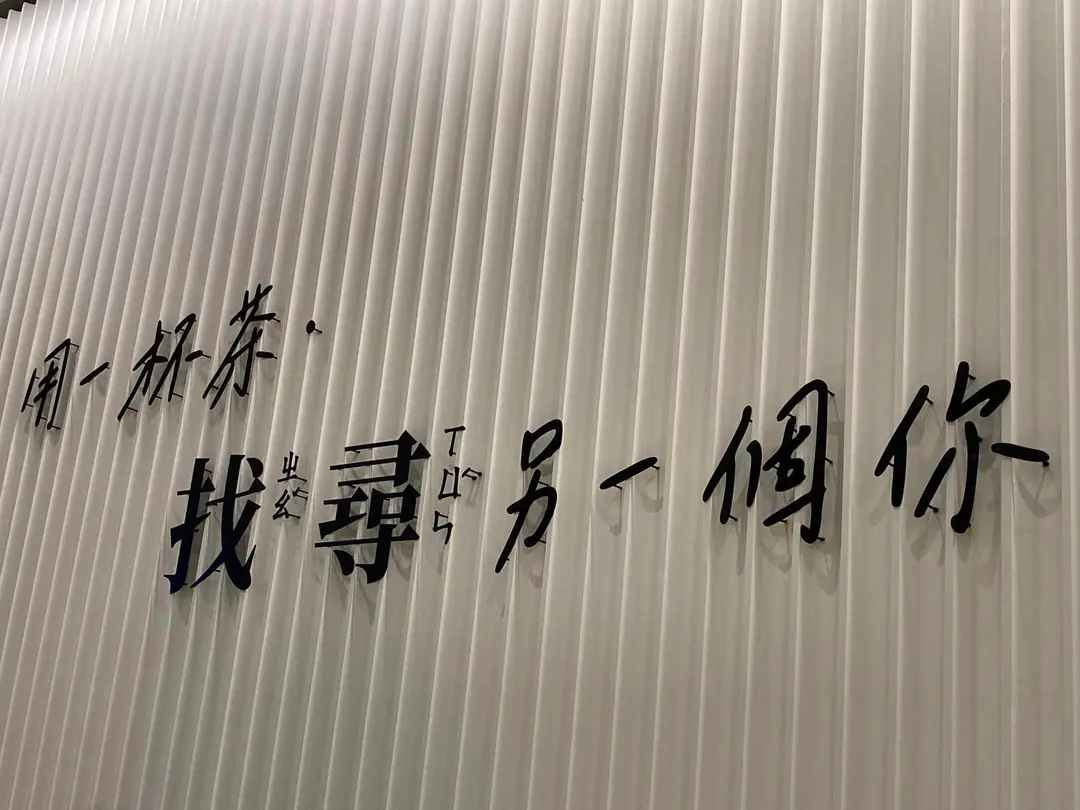 用一杯茶·
找ㄓㄠˇ尋ㄒㄩㄣˊ另一個你